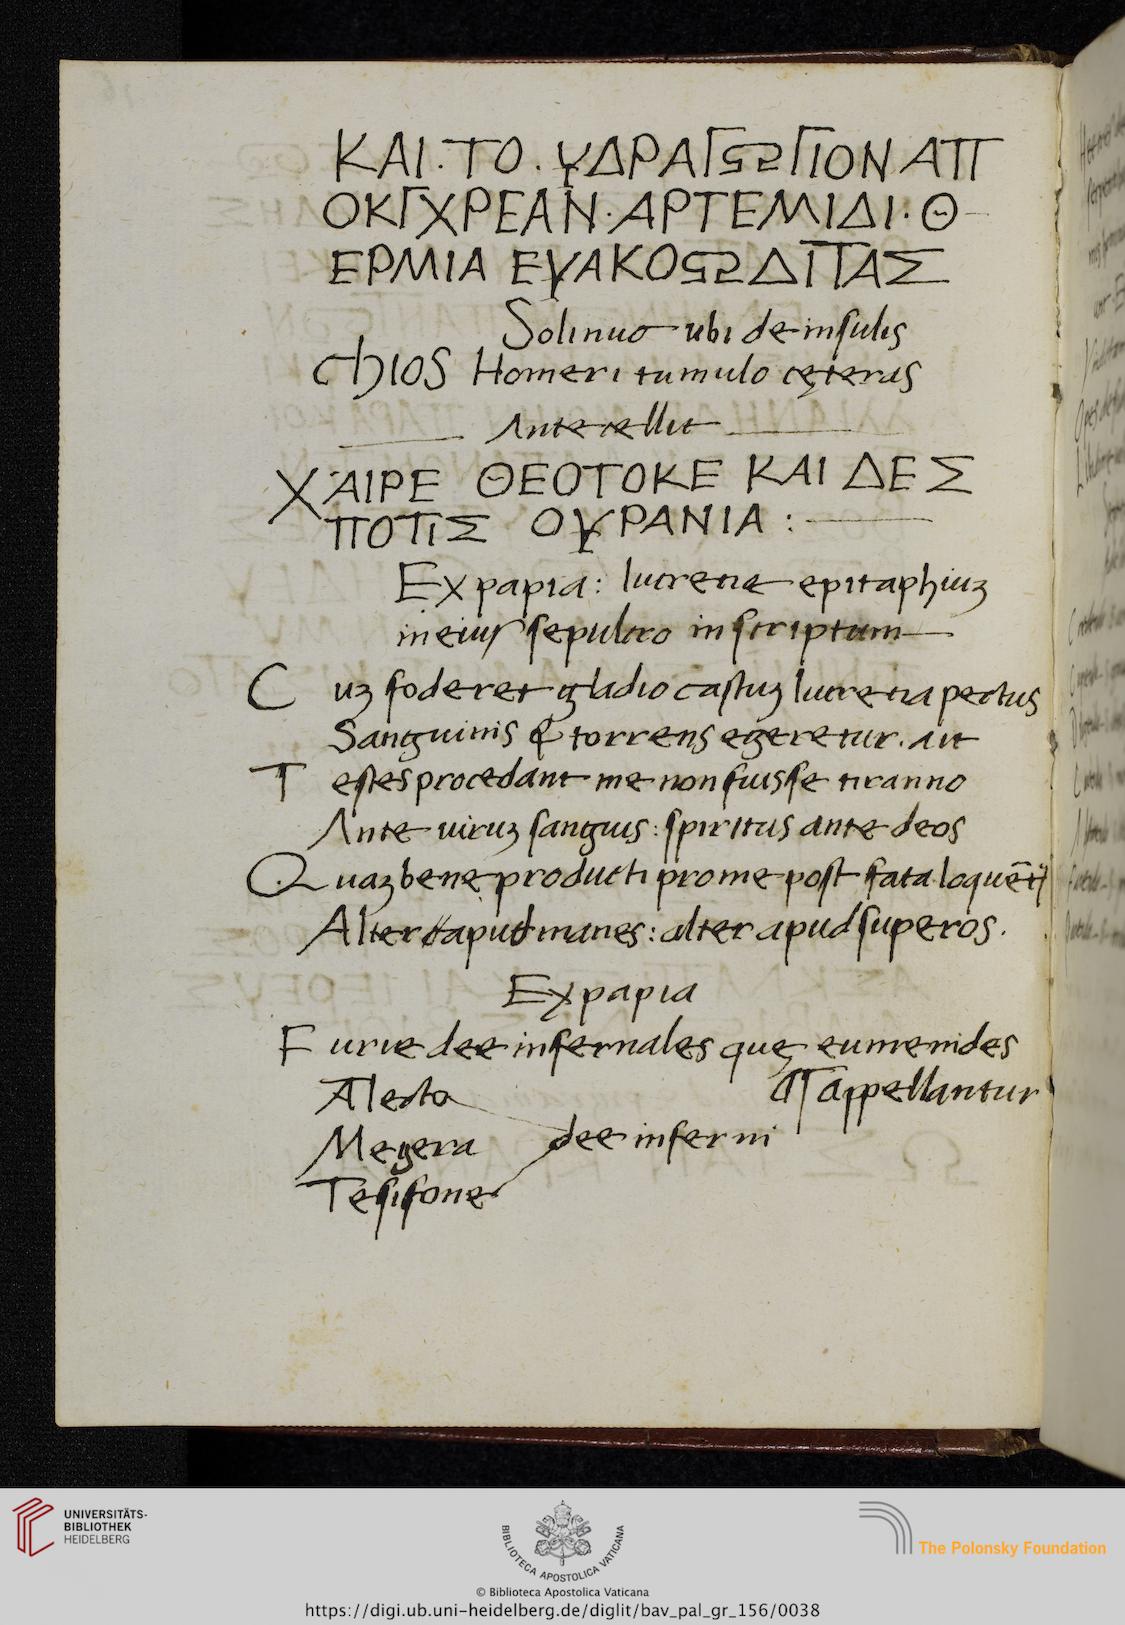 ΚΑΙ·ΤΟ·ΥΔΡΑΓΩΓΙΟΝ ΑΠ
ΟΚΓΧΡΕΑΝ·ΑΡΤΕΜΙΔΙ·Θ
ΕΡΜΙΑ ΕΥΑΚΟΩΔΙΤΑΣ
Solinus ubi de insulis
Chios Homeri tumulo cęteras
Antecellit
ΧΑΙΡΕ ΘΕΟΤΟΚΕ ΚΑΙ ΔΕΣ
ΠΟΤΙΣ ΟΥΡΑΝΙΑ :
Ex papia: lucretie epitaphiuʒ
in eius sepulcro inscriptum
Cuʒ foderet gladio castuʒ lucretia pectus
Sanguinis & torrens egeretur. ait
Testes procedant me non fuisse tiranno
Ante viruʒ sanguis: spiritus ante deos
Quaʒ bene producti pro me post fata loquēt̄
Alter apud manes: alter apud superos.
Ex papia
Furie dee infernales quę eumenides
appellantur
Alecto
Megera dee inferni
Tesifone
UNIVERSITÄTS-
BIBLIOTHEK
HEIDELBERG
BIBLIOTECA APOSTOLICA VATICANA
The Polonsky Foundation
© Biblioteca Apostolica Vaticana
https://digi.ub.uni-heidelberg.de/diglit/bav_pal_gr_156/0038